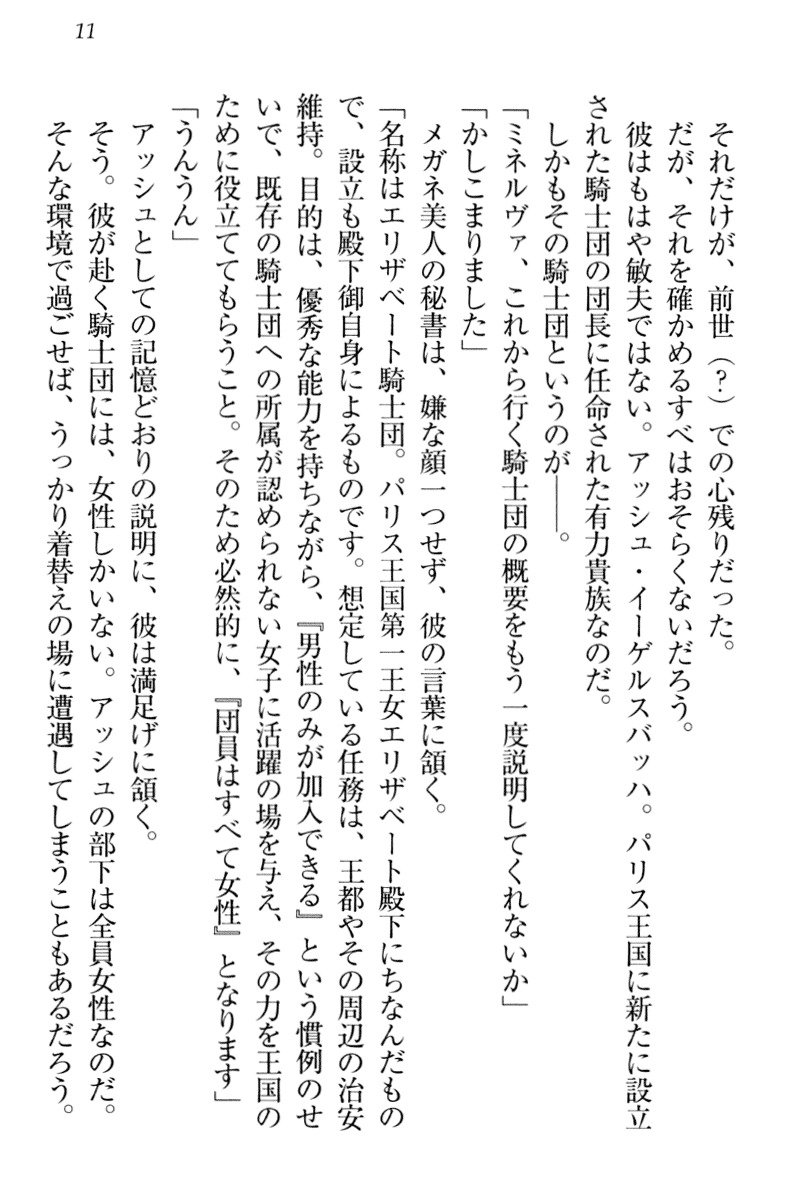 11
それだけが、前世（？）での心残りだった。
だが、それを確かめるすべはおそらくないだろう。
彼はもはや敏夫ではない。アッシュ・イーゲルスバッハ。パリス王国に新たに設立
された騎士団の団長に任命された有力貴族なのだ。
しかもその騎士団というのが――。
「ミネルヴァ、これから行く騎士団の概要をもう一度説明してくれないか」
「かしこまりました」
メガネ美人の秘書は、嫌な顔一つせず、彼の言葉に頷く。
「名称はエリザベート騎士団。パリス王国第一王女エリザベート殿下にちなんだもの
で、設立も殿下御自身によるものです。想定している任務は、王都やその周辺の治安
維持。目的は、優秀な能力を持ちながら、『男性のみが加入できる』という慣例のせ
いで、既存の騎士団への所属が認められない女子に活躍の場を与え、その力を王国の
ために役立ててもらうこと。そのため必然的に、『団員はすべて女性』となります」
「うんうん」
アッシュとしての記憶どおりの説明に、彼は満足げに頷く。
そう。彼が赴く騎士団には、女性しかいない。アッシュの部下は全員女性なのだ。
そんな環境で過ごせば、うっかり着替えの場に遭遇してしまうこともあるだろう。